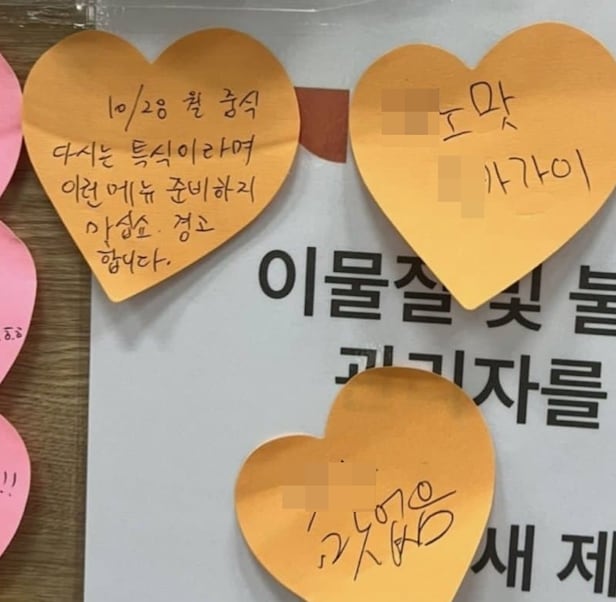 10/28 월 중식
다시는 특식이라며
이런 메뉴 준비하지
마십쇼. 경고
합니다.
노맛
가이
이물질 및 불
관리자를
맛없음
새 제
!!